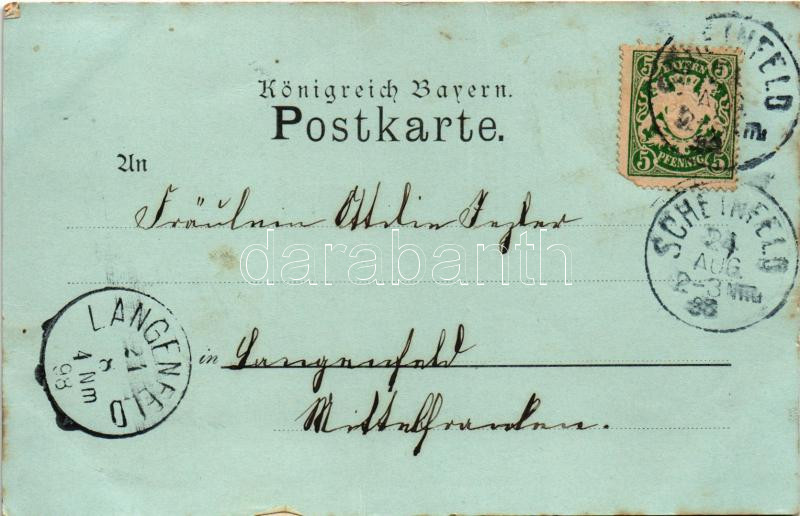 Königreich Bayern.
Postkarte.
BAYERN
5 5
5 PFENNIG 5
SCHEINFELD
SCHEINFELD
24
AUG.
2-3 Nm
98
An
Fräulein Ottilie
darabanth
in Langenfeld
Mittelfranken.
LANGENFELD
4 Nm
98